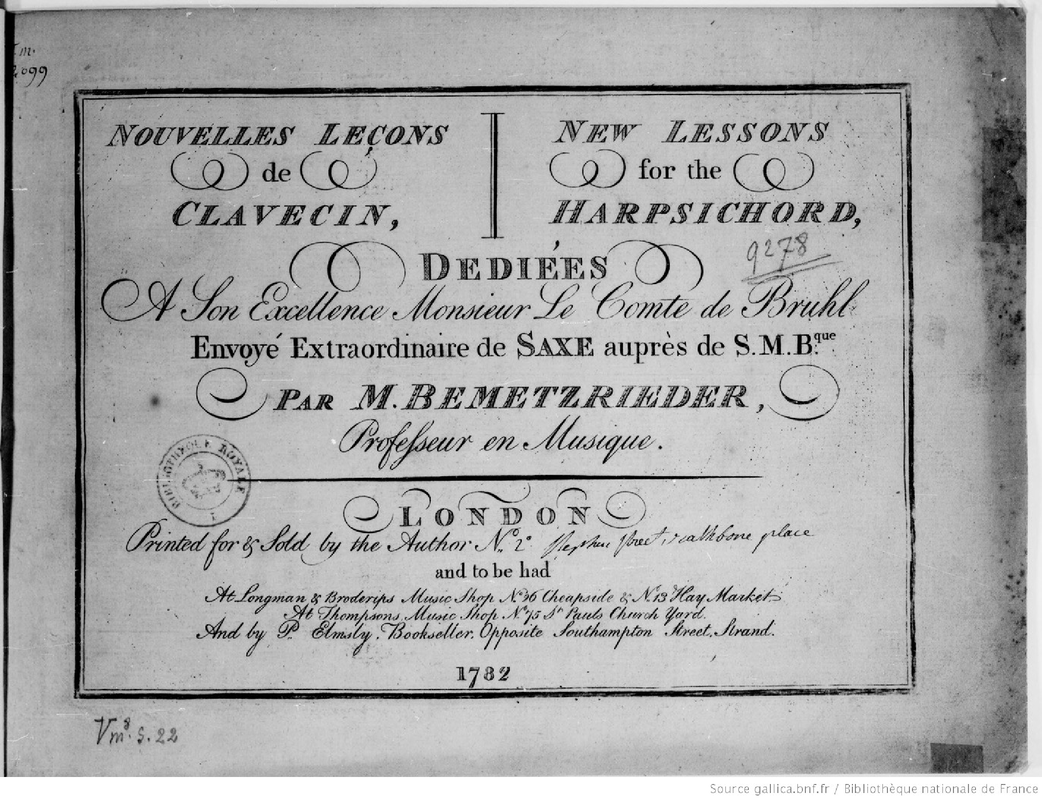 Vm.
2099
NOUVELLES LEÇONS
de
CLAVECIN,
NEW LESSONS
for the
HARPSICHORD,
9278
DEDIÉES
A Son Excellence Monsieur Le Comte de Bruhl
Envoyé Extraordinaire de SAXE auprès de S.M.B.que
PAR M. BEMETZRIEDER,
Professeur en Musique.
BIBLIOTHEQUE ROYALE
LONDON
Printed for & Sold by the Author No. 2 Stephen Street, rathbone place
and to be had
At Longman & Broderips Music Shop No. 26 Cheapside & No. 13 Hay Market
At Thompsons Music Shop No. 75 St. Pauls Church Yard.
And by P. Elmsly, Bookseller, Opposite Southampton Street, Strand.
1782
Vm8. S. 22
Source gallica.bnf.fr / Bibliothèque nationale de France